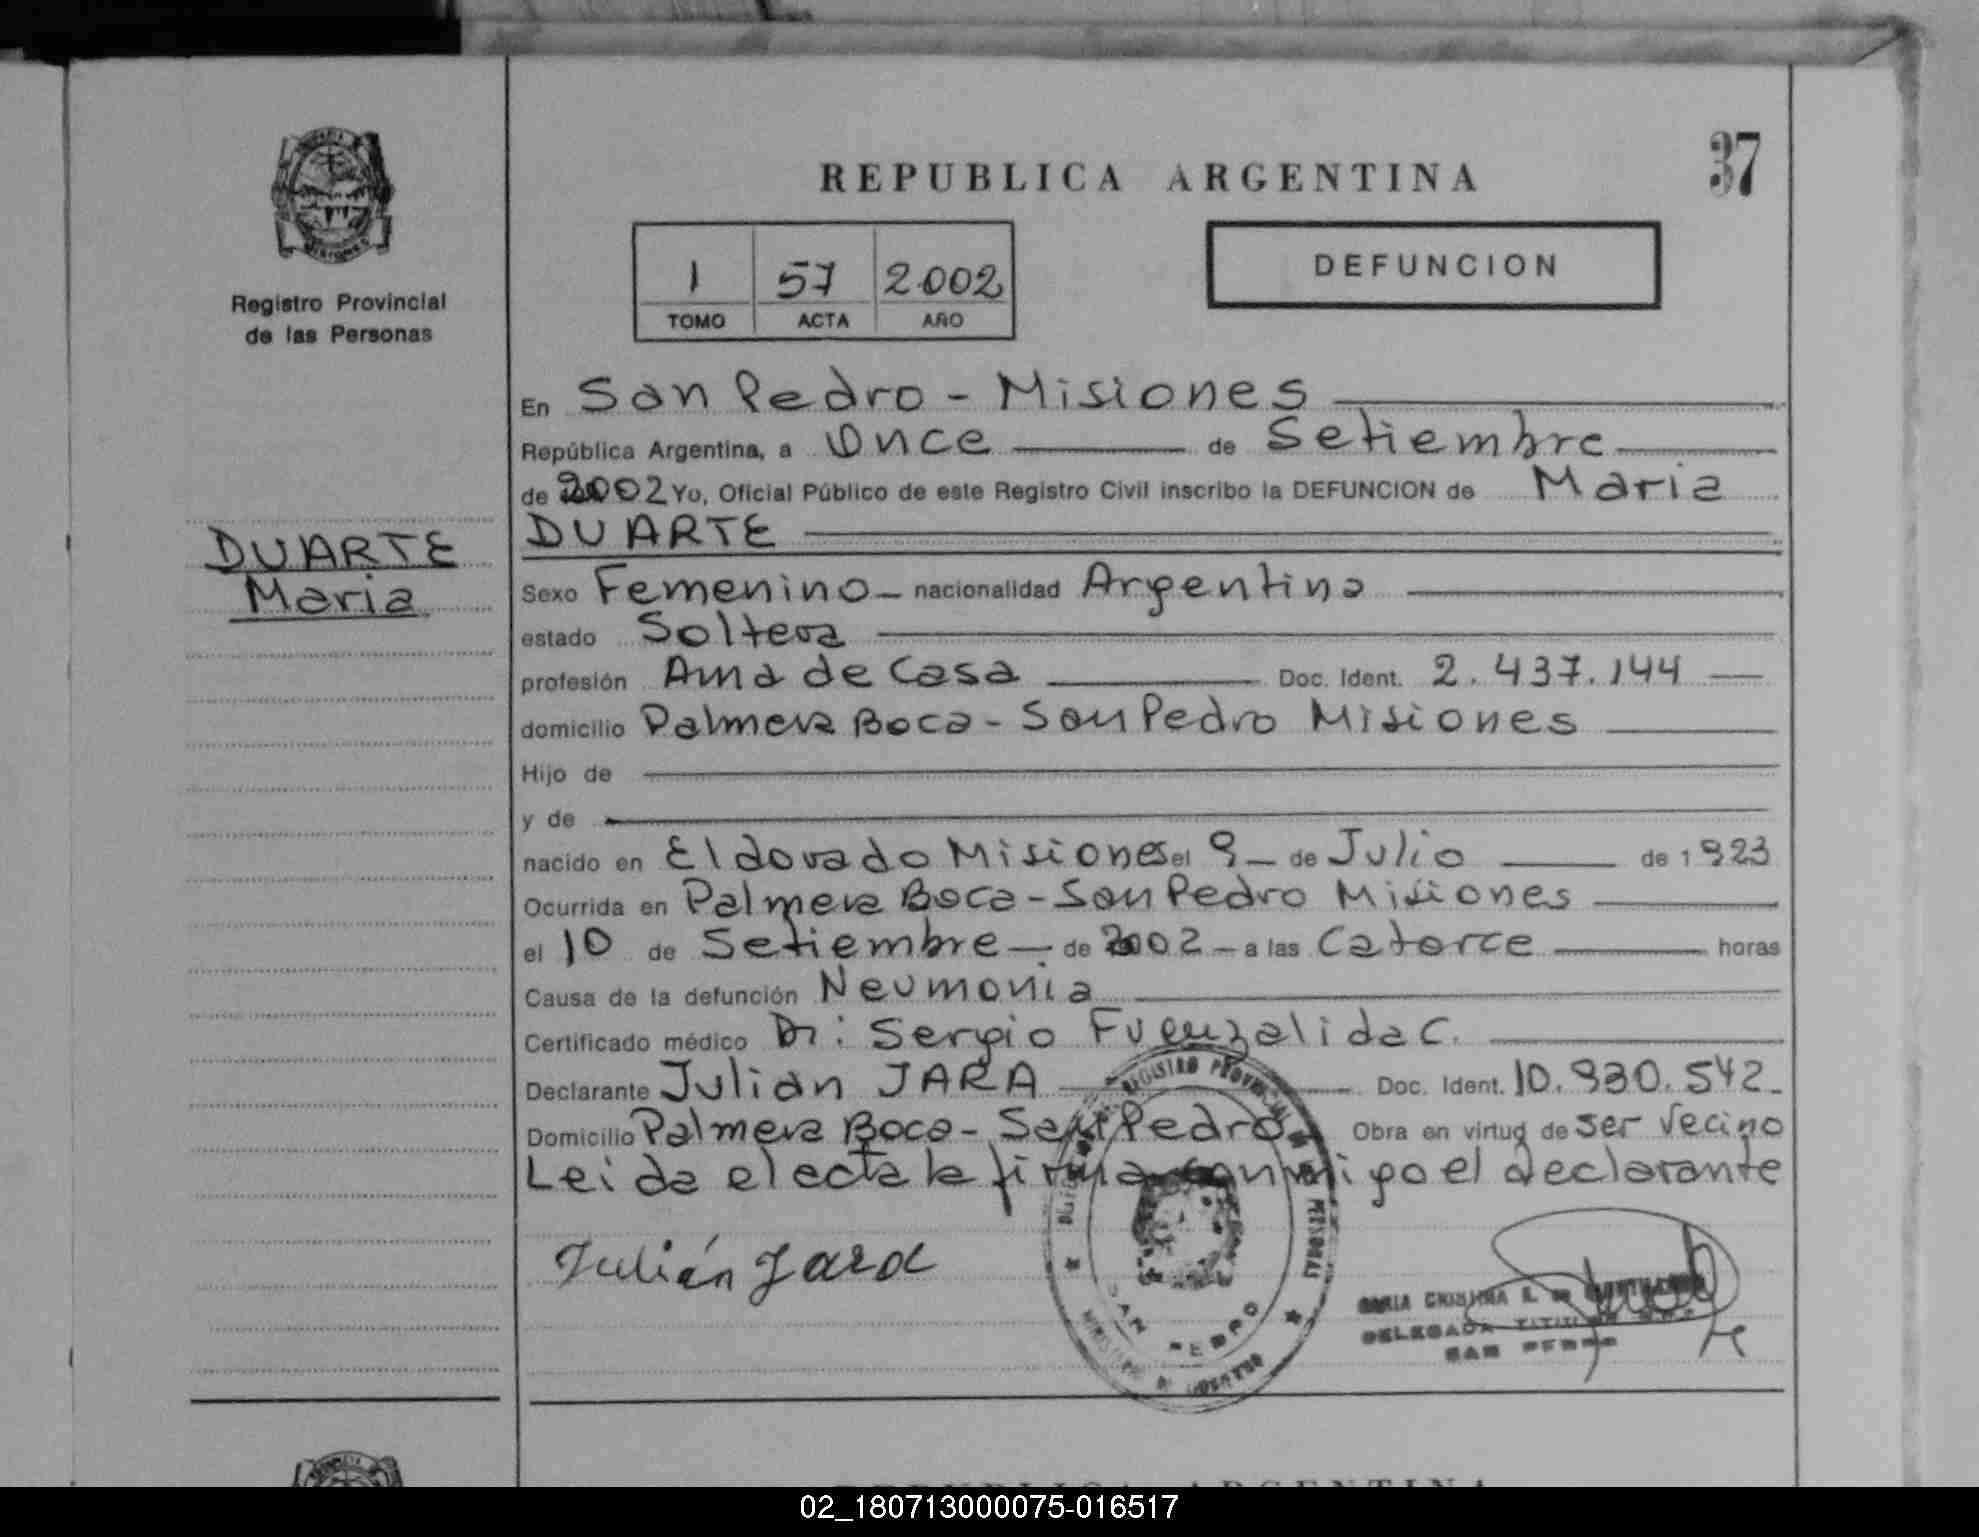 37
REPUBLICA ARGENTINA
1 57 2002
TOMO ACTA AÑO
DEFUNCION
Registro Provincial
de las Personas
DUARTE
Maria
En San Pedro - Misiones
República Argentina, a Once de Setiembre
de 2002 Yo, Oficial Público de este Registro Civil inscribo la DEFUNCION de Maria
DUARTE
Sexo Femenino - nacionalidad Argentina
estado Soltera
profesión Ama de Casa Doc. Ident. 2.437.144
domicilio Palmera Boca - San Pedro Misiones
Hijo de
y de
nacido en Eldorado Misiones el 9 de Julio de 1923
Ocurrida en Palmera Boca - San Pedro Misiones
el 10 de Setiembre de 2002 - a las Catorce horas
Causa de la defunción Neumonia
Certificado médico Dr: Sergio Fuenzalida C.
Declarante Julian JARA Doc. Ident. 10.930.542.
Domicilio Palmera Boca - San Pedro Obra en virtud de ser vecino
Leida el acta la firma conmigo el declarante
Julián Jara
REGISTRO PROVINCIAL DE LAS PERSONAS
SAN PEDRO
MINISTERIO DE GOBIERNO
MARIA CRISTINA
DELEGADA TITULAR
SAN PEDRO
02_180713000075-016517